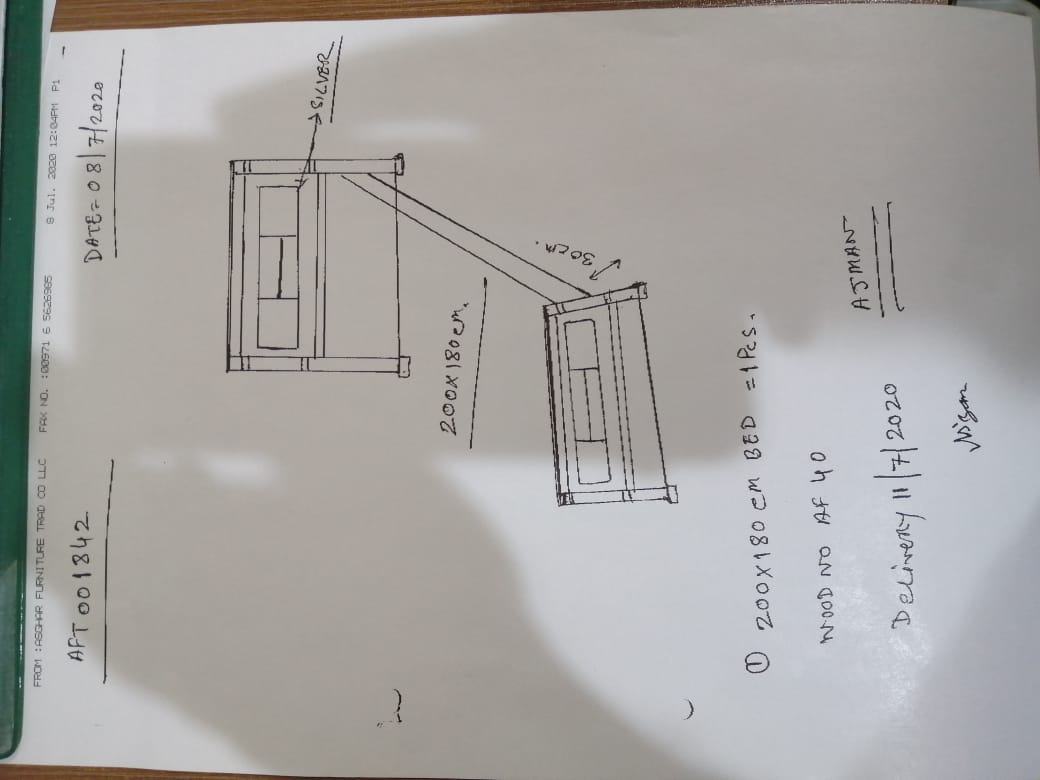 FROM :ASGHAR FURNITURE TRAD CO LLC FAX NO. :00971 6 5626985 8 Jul. 2020 12:04PM P1
AFT 001842
DATE= 08/7/2020
SILVER
200X180cm.
30cm.
① 200X180 cm BED =1Pcs.
WOOD NO AF 40
AJMAN
Delivery 11/7/2020
Nizam